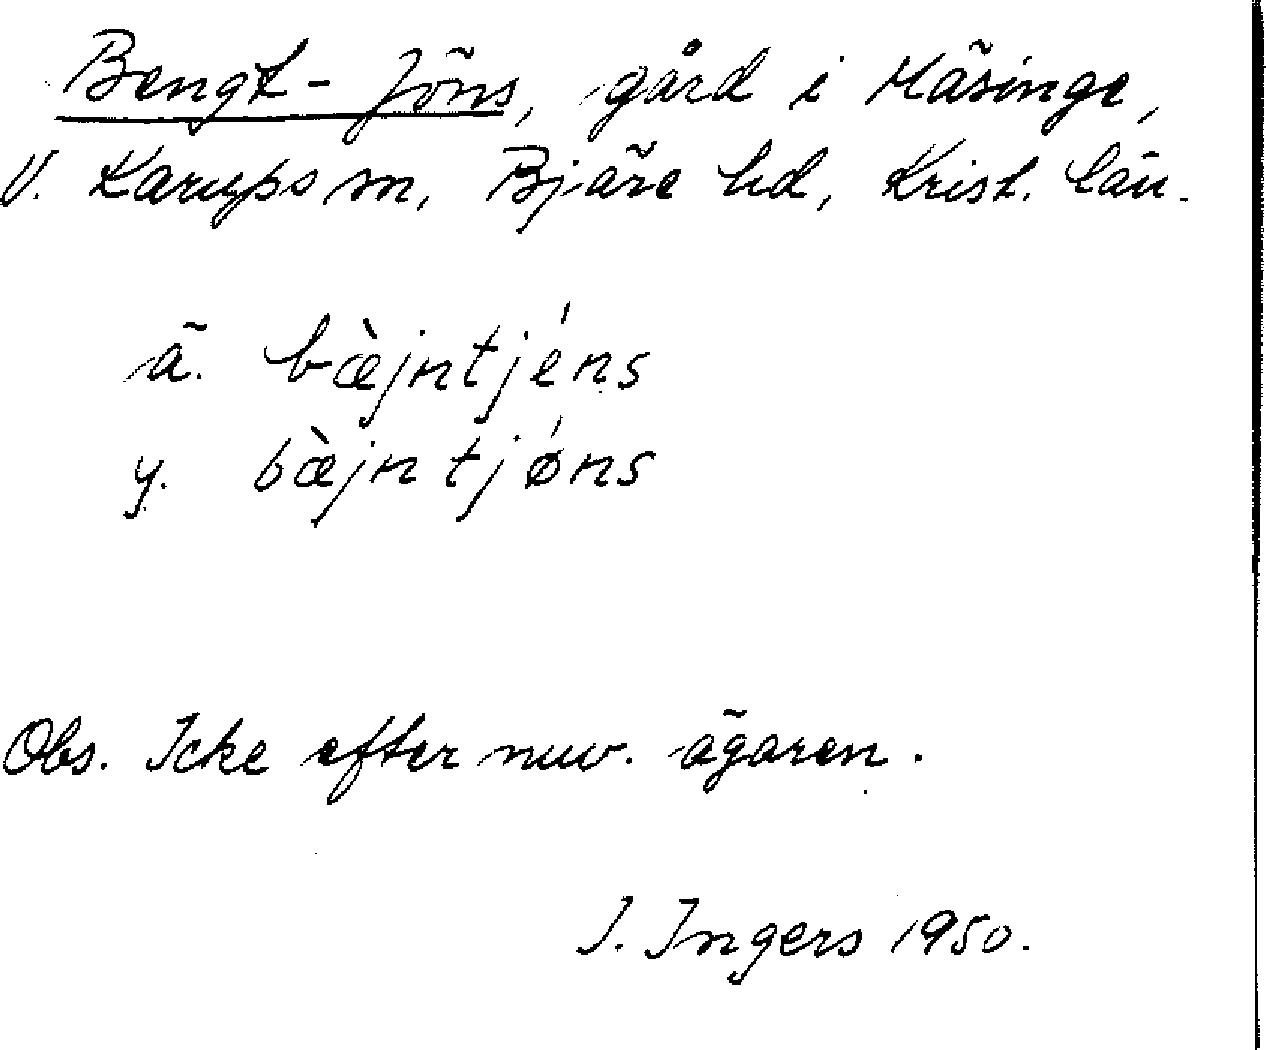 Bengt-Jöns, gård i Häsinge,
V. Karups sn, Bjäre hd, Krist. län.
ä. bæ̀jntjéns
y. bæ̀jntjǿns
Obs. Icke efter nuv. ägaren.
I. Ingers 1950.